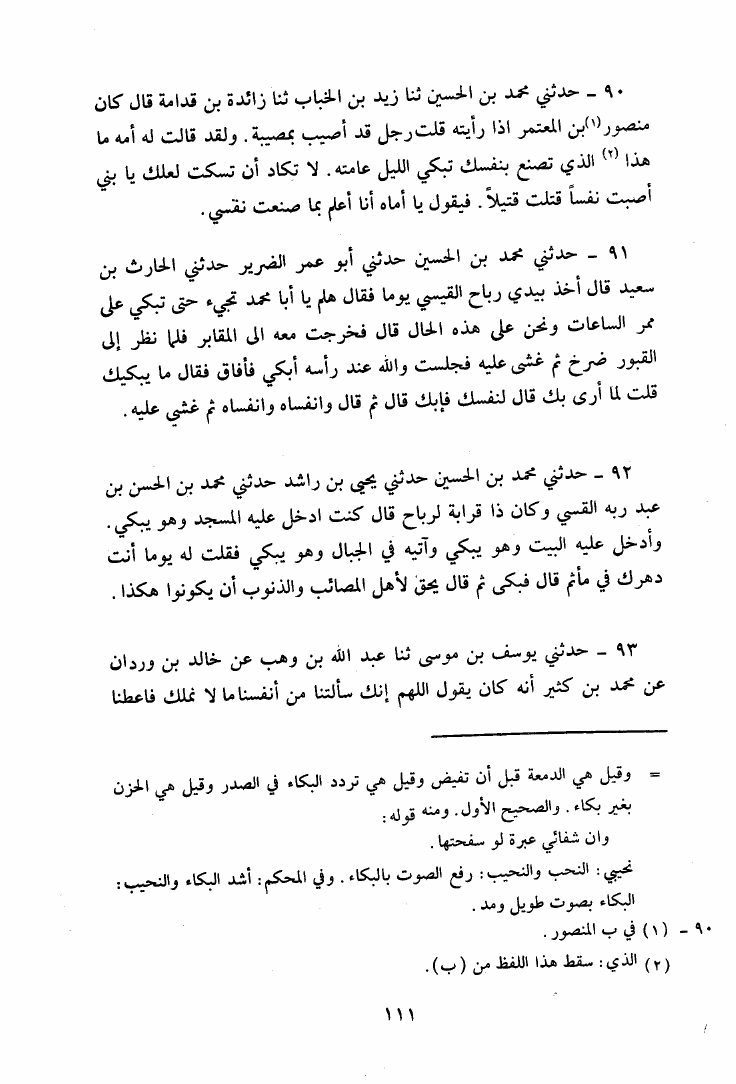 ٩٠ ـ حدثني محمد بن الحسين ثنا زيد بن الخباب ثنا زائدة بن قدامة قال كان
منصور(١)بن المعتمر اذا رأيته قلت رجل قد أصيب بمصيبة. ولقد قالت له أمه ما
هذا (٢) الذي تصنع بنفسك تبكي الليل عامته. لا تكاد أن تسكت لعلك يا بني
أصبت نفساً قتلت قتيلاً. فيقول يا أماه أنا أعلم بما صنعت نفسي.
٩١ ـ حدثني محمد بن الحسين حدثني أبو عمر الضرير حدثني الحارث بن
سعيد قال أخذ بيدي رباح القيسي يوما فقال هلم يا أبا محمد تجيء حتى تبكي على
ممر الساعات ونحن على هذه الحال قال فخرجت معه الى المقابر فلما نظر إلى
القبور ضرخ ثم غشى عليه فجلست والله عند رأسه أبكي فأفاق فقال ما يبكيك
قلت لما أرى بك قال لنفسك فإبك قال ثم قال وانفساه وانفساه ثم غشي عليه.
٩٢ ـ حدثني محمد بن الحسين حدثني يحيى بن راشد حدثني محمد بن الحسن بن
عبد ربه القسي وكان ذا قرابة لرباح قال كنت ادخل عليه المسجد وهو يبكي.
وأدخل عليه البيت وهو يبكي وآتيه في الجبال وهو يبكي فقلت له يوما أنت
دهرك في مأتم قال فبكى ثم قال يحق لأهل المصائب والذنوب أن يكونوا هكذا.
٩٣ ـ حدثني يوسف بن موسى ثنا عبد الله بن وهب عن خالد بن وردان
عن محمد بن كثير أنه كان يقول اللهم إنك سألتنا من أنفسنا ما لا نملك فاعطنا
= وقيل هي الدمعة قبل أن تفيض وقيل هي تردد البكاء في الصدر وقيل هي الحزن
بغير بكاء. والصحيح الأول. ومنه قوله:
وان شفائي عبرة لو سفحتها.
نحيبي: النحب والنحيب: رفع الصوت بالبكاء. وفي المحكم: أشد البكاء والنحيب:
البكاء بصوت طويل ومد.
٩٠ ـ (١) في ب المنصور.
(٢) الذي: سقط هذا اللفظ من (ب).
١١١